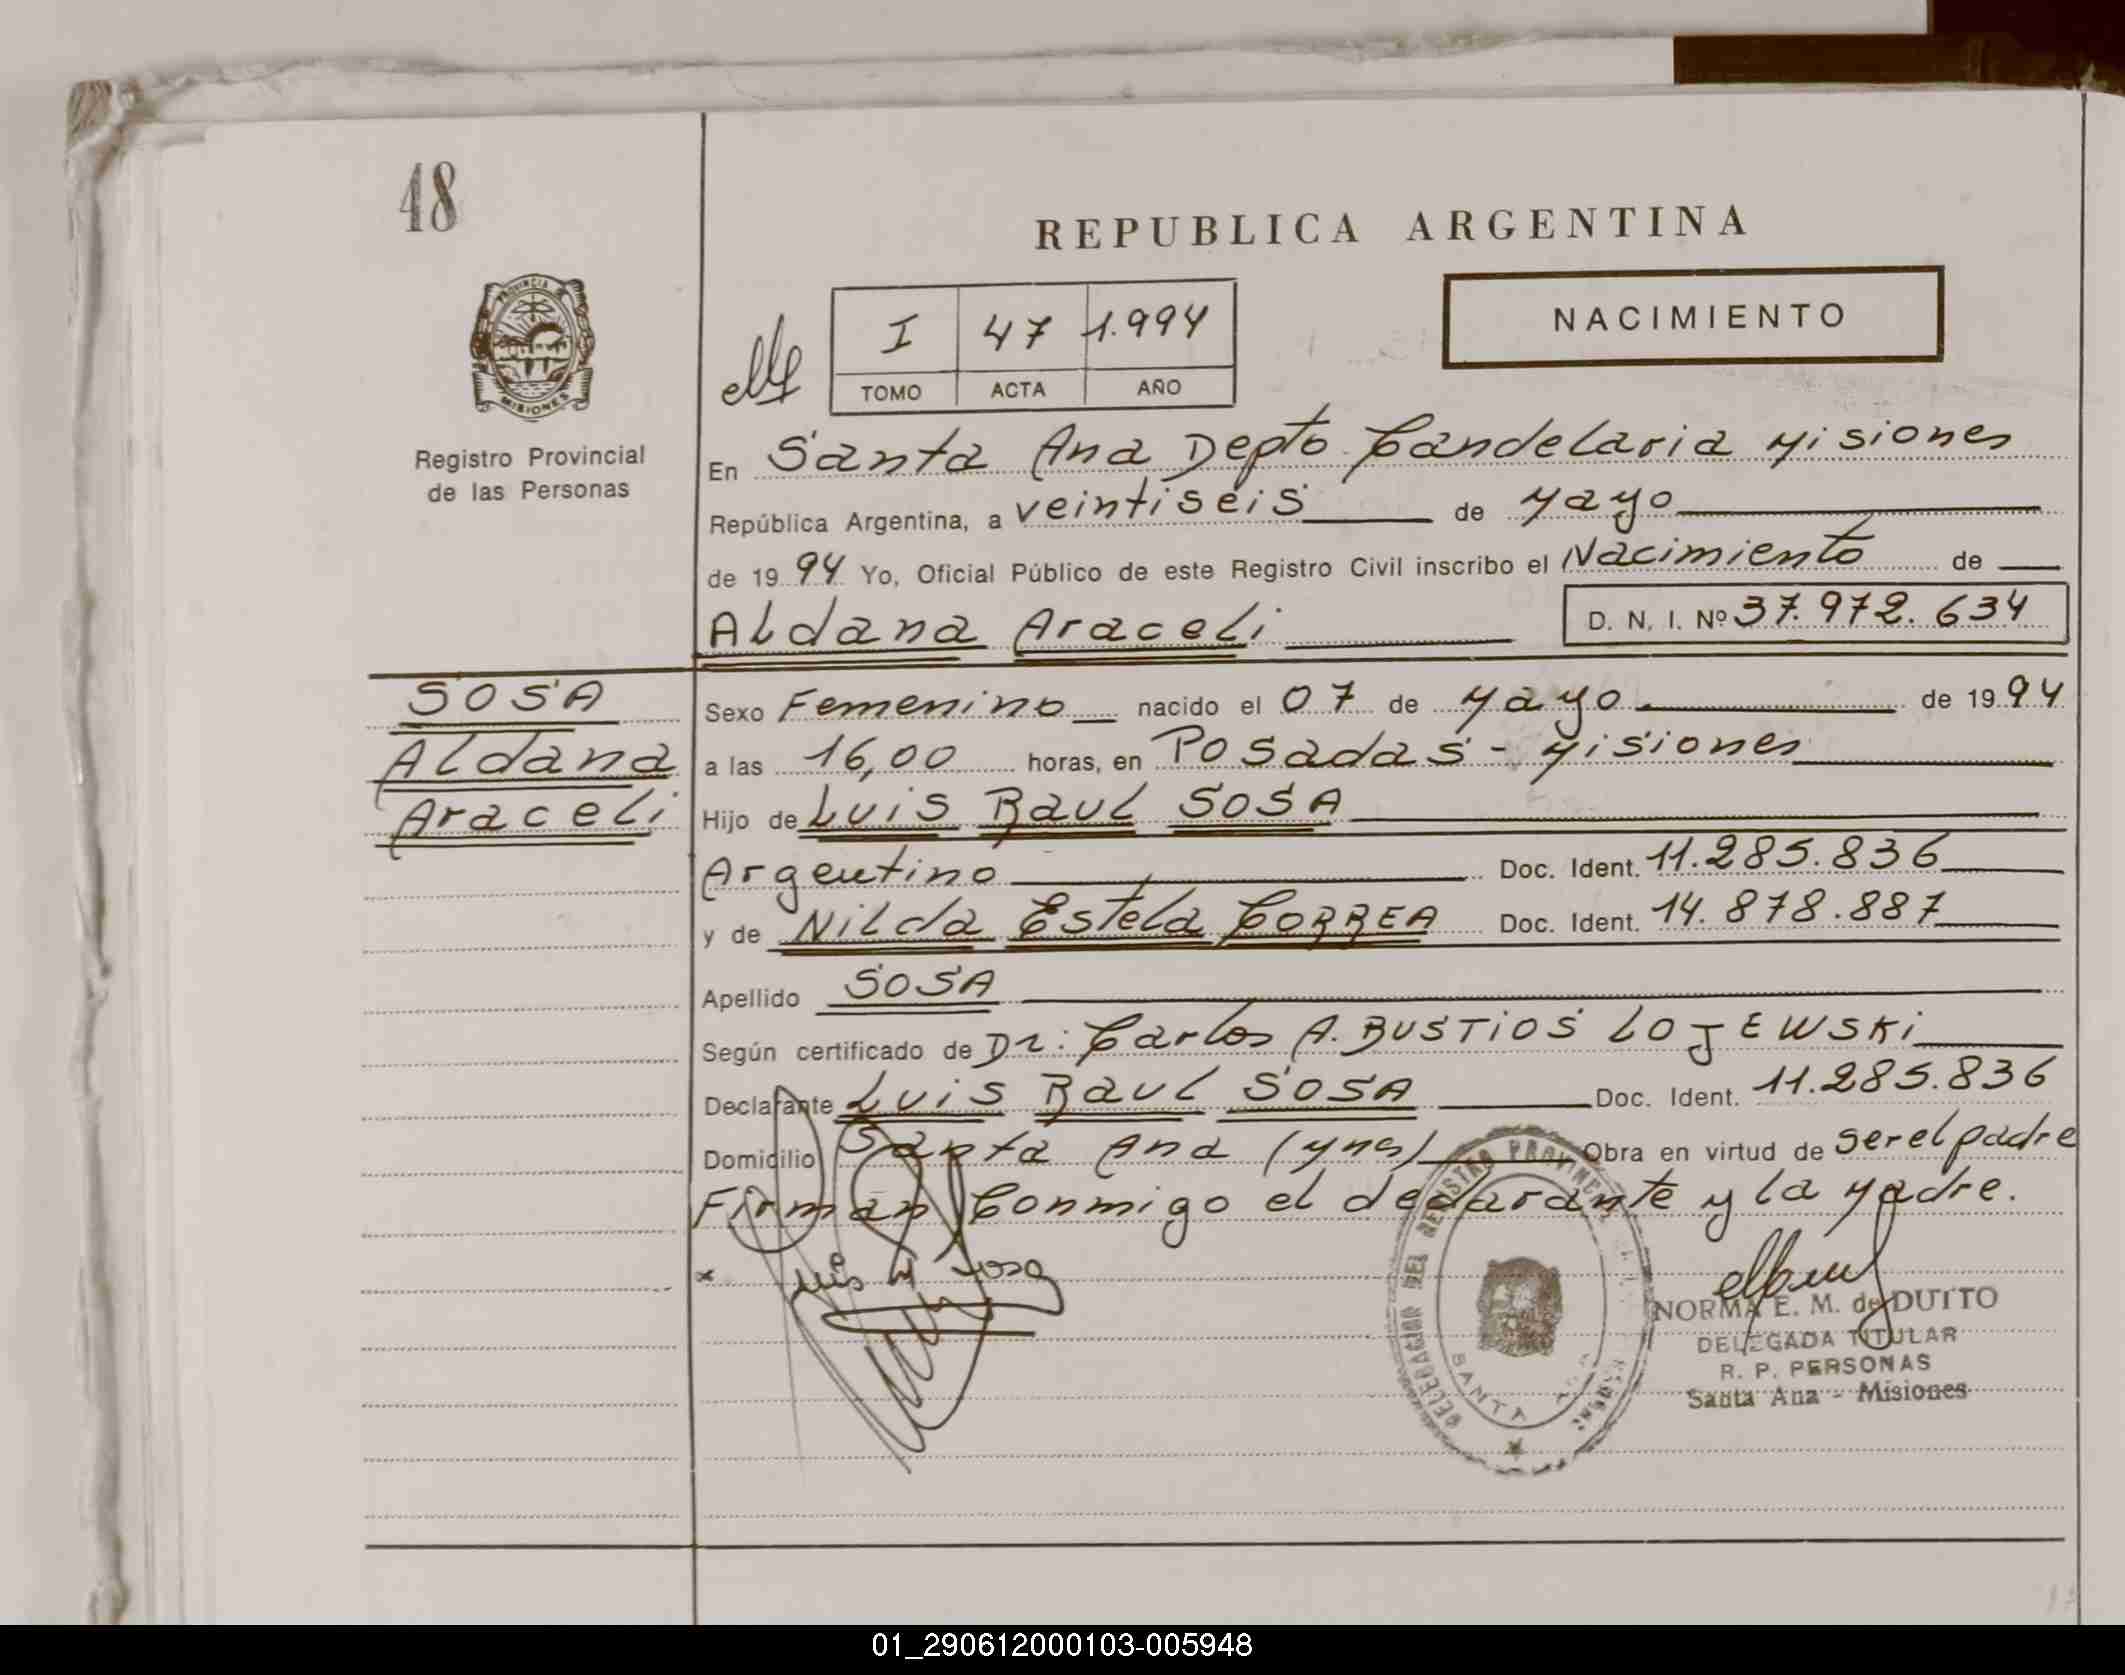 48
REPUBLICA ARGENTINA
PROVINCIA DE
MISIONES
I 47 1.994
TOMO ACTA AÑO
NACIMIENTO
Registro Provincial
de las Personas
En Santa Ana Depto Candelaria Misiones
República Argentina, a veintiseis de Mayo
de 19 94 Yo, Oficial Público de este Registro Civil inscribo el Nacimiento de
Aldana Araceli D. N. I. Nº 37.972.634
SOSA
Aldana
Araceli
Sexo Femenino nacido el 07 de Mayo de 19 94
a las 16,00 horas, en Posadas - Misiones
Hijo de Luis Raul SOSA
Argentino Doc. Ident. 11.285.836
y de Nilda Estela CORREA Doc. Ident. 14.878.887
Apellido SOSA
Según certificado de Dr: Carlos A. BUSTIOS LOJEWSKi
Declarante Luis Raul SOSA Doc. Ident. 11.285.836
Domicilio Santa Ana (Mnes) Obra en virtud de ser el padre
Firman Conmigo el declarante y la Madre.
x Luis R Sosa
DELEGACION DEL REGISTRO PROVINCIAL
SANTA
NORMA E. M. de DUTTO
DELEGADA TITULAR
R. P. PERSONAS
Santa Ana - Misiones
01_290612000103-005948